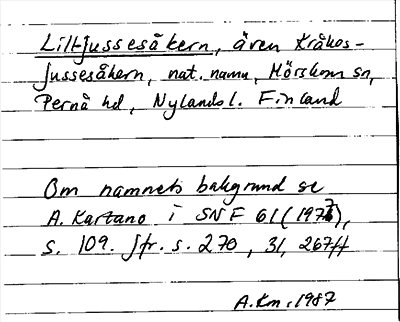 Lilltjussesåkern, även Kråkos-
jussesåkern, nat. namn, Mörskom sn,
Pernå hd, Nylands l. Finland
Om namnets bakgrund se
A. Kartano i SNF 61 (1977),
s. 109. Jfr. s. 270, 31, 267ff
A.Km, 1987